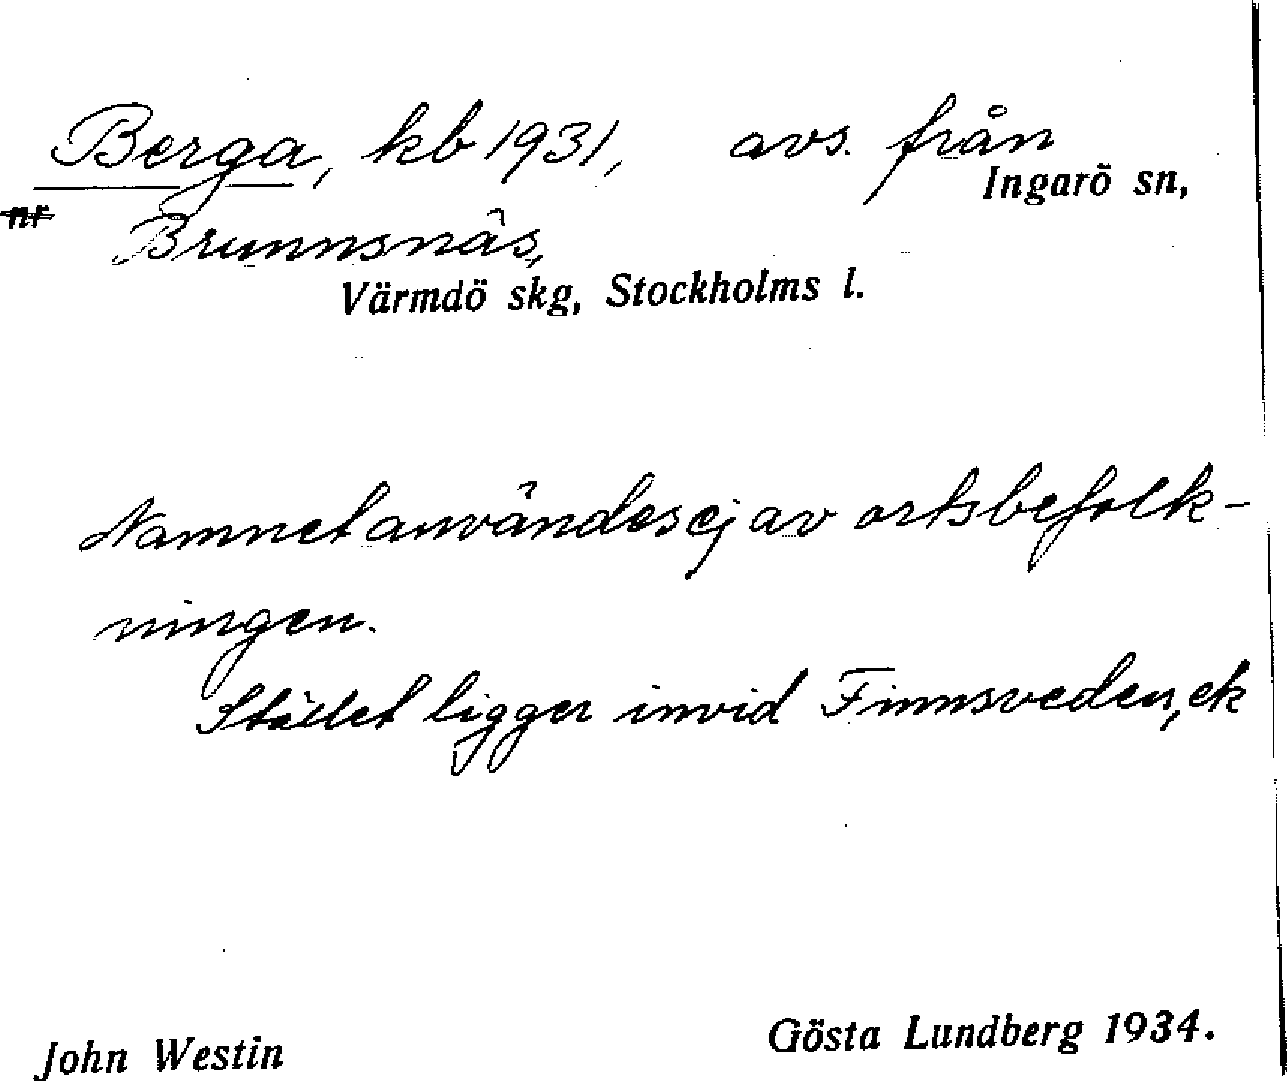 Berga, kb 1931, avs. från
Ingarö sn,
nr Brunnsnäs,
Värmdö skg, Stockholms l.
Namnet användes ej av ortsbefolk-
ningen.
Stället ligger invid Finnsveden, ek
John Westin
Gösta Lundberg 1934.